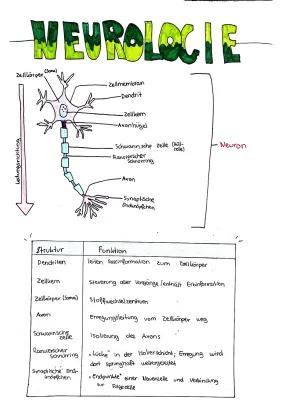 NEUROLOGIE
Zellkörper (Soma)
Zellmembran
Dendrit
Zellkern
Axonhügel
Schwann'sche Zelle (Hüll-
zelle)
Ranvierscher
Schnürring
Axon
Synaptische
Endknöpfchen
Neuron
Struktur Funktion
Dendriten leiten Reizinformation zum Zellkörper
Zellkern Steuerung aller Vorgänge / enthält Erbinformation
Zellkörper (Soma) Stoffwechselzentrum
Axon Erregungsleitung vom Zellkörper weg
Schwannsche
Zelle Isolierung des Axons
Ranvierscher
Schnürring „Lücke" in der Isolierschicht; Erregung wird
dort sprunghaft weitergeleitet
Synaptische End-
knöpfchen „Endpunkte" einer Nervenzelle und Verbindung
zur Folgezelle